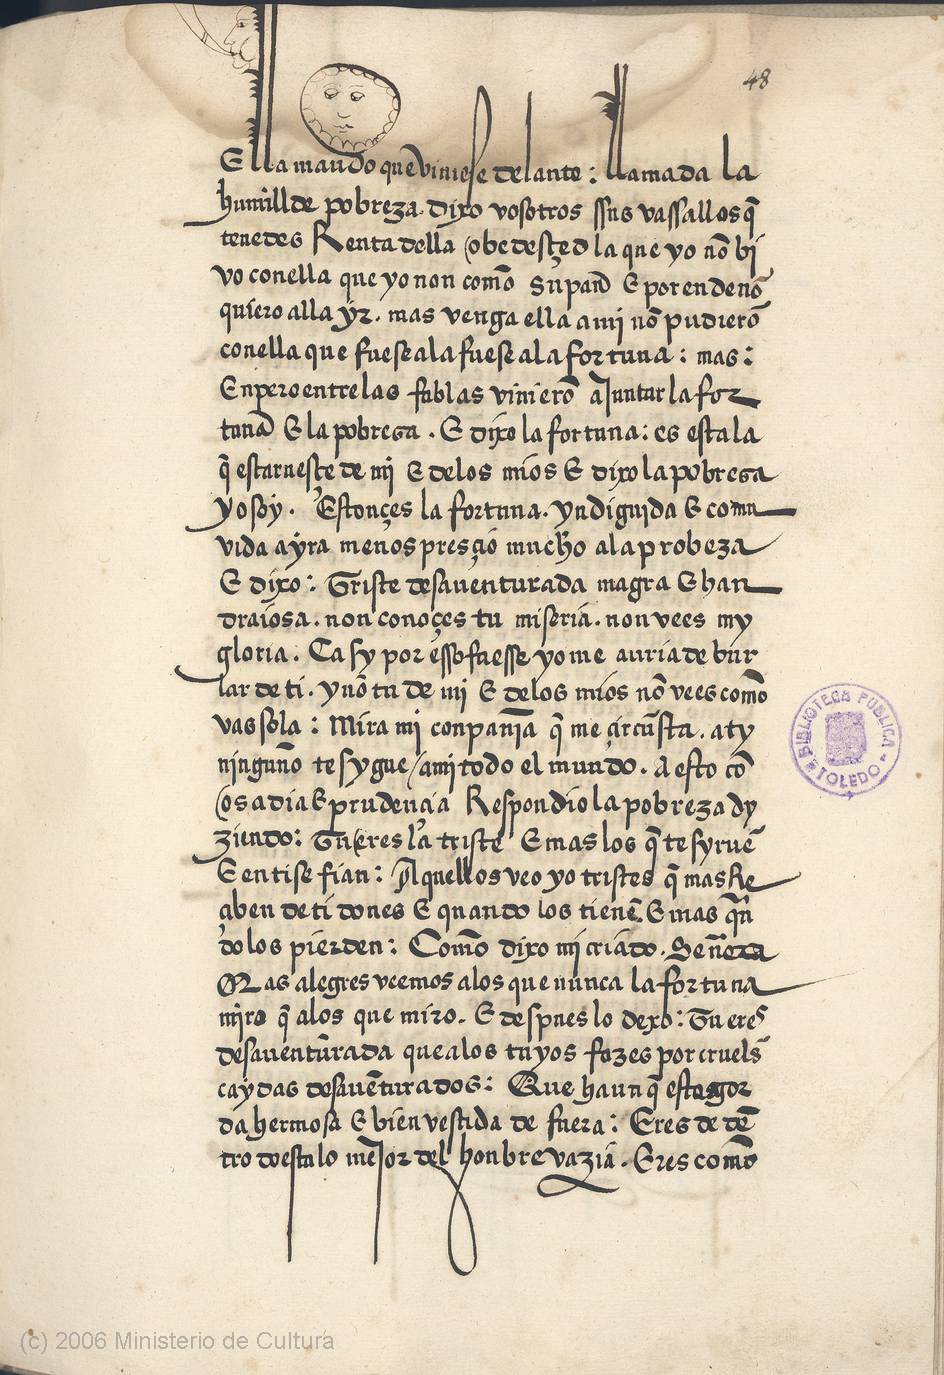 48
Ella mando que viniese delante: llamada la
humillde pobreza. dixo vosotros ssus vassallos q̃
tenedes Renta della obedesçed la que yo nõ bi
vo con ella que yo non comõ su pañ E por ende nõ
quiero alla yr. mas venga ella a mj nõ pudierõ
con ella que fuese a la fuese a la fortuna: mas:
Enpero entre las fablas vinierõ aJuntar la for
tuna E la pobresa. E dixo la fortuna: es esta la
q̃ escarnesçe de mj E de los mios E dixo la pobresa
yo soy. Estonçes la fortuna. yndignida E comu
vida a yra menospresçió mucho a la probeza
E dixo: Triste desauenturada magra E han
draiosa. non conoçes tu miseria. non vees my
gloria. Ca sy por esso fuesse yo me auria de bur
lar de ti. y nõ tu de mj E de los mios nõ vees comõ
vas sola: Mira mj conpañja q̃ me çircũsta. a ty
ningunõ te sygue / a mi todo el mundo. A esto cõ
osadia E prudençia Respondio la pobreza dy
ziendo: Tu eres la triste E mas los q̃ te syruẽ
E en ti se fian: Aquellos veo yo tristes q̃ mas Re
çiben de ti dones E quando los tienẽ E mas qñ
do los pierden: Comõ dixo mj criado. Seneca
Mas alegres veemos a los que nunca la fortuna
mjro q̃ a los que miro. E despues lo dexo: Tu eres
desauenturada que a los tuyos fazes por cruels
caydas desauẽturados: Que haun q̃ estes gor
da hermosa E bien vestida de fuera: Eres de dẽ
tro do esta lo meJor del honbre vazia. Eres comõ
BIBLIOTECA PUBLICA
TOLEDO
(c) 2006 Ministerio de Cultura